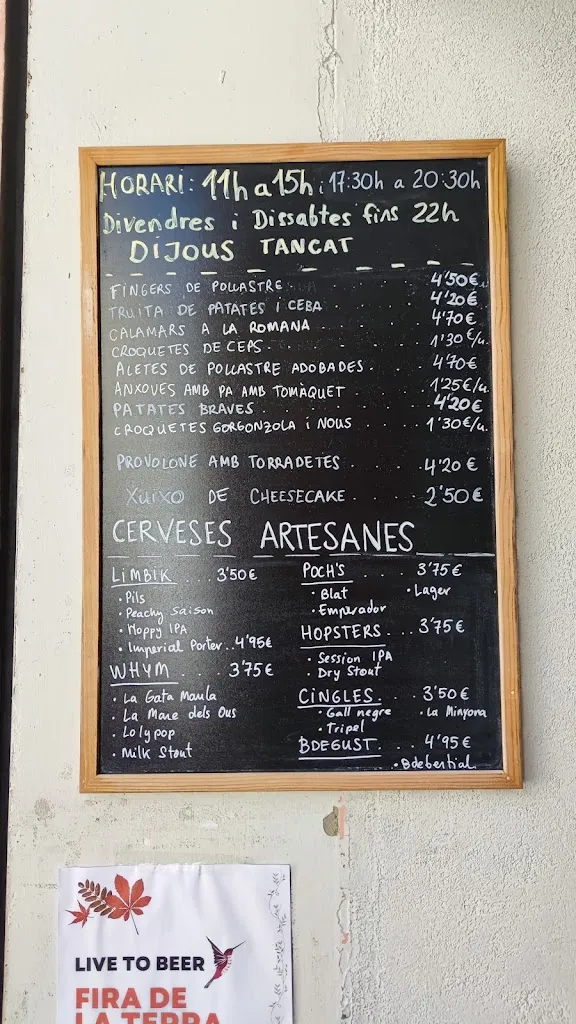 HORARI: 11h a 15h i 17:30h a 20:30h
Divendres i Dissabtes fins 22h
DIJOUS TANCAT
FINGERS DE POLLASTRE 4'50€
TRUITA DE PATATES I CEBA 4'20€
CALAMARS A LA ROMANA 4'70€
CROQUETES DE CEPS 1'30€/u.
ALETES DE POLLASTRE ADOBADES 4'70€
ANXOVES AMB PA AMB TOMÀQUET 1'25€/u.
PATATES BRAVES 4'20€
CROQUETES GORGONZOLA i NOUS 1'30€/u.
PROVOLONE AMB TORRADETES 4'20€
XUIXO DE CHEESECAKE 2'50€
CERVESES ARTESANES
LIMBIK .... 3'50€
• Pils
• Peachy Saison
• Hoppy IPA
• Imperial Porter.. 4'95€
WHYM 3'75€
• La Gata Maula
• La Mare dels Ous
• Lolypop
• Milk Stout
POCH'S .... 3'75€
• Blat • Lager
• Emperador
HOPSTERS ... 3'75€
• Session IPA
• Dry Stout
CINGLES .... 3'50€
• Gall negre • La Minyona
• Tripel
BDEGUST .... 4'95€
• Bdebestial
LIVE TO BEER
FIRA DE
LA TERRA